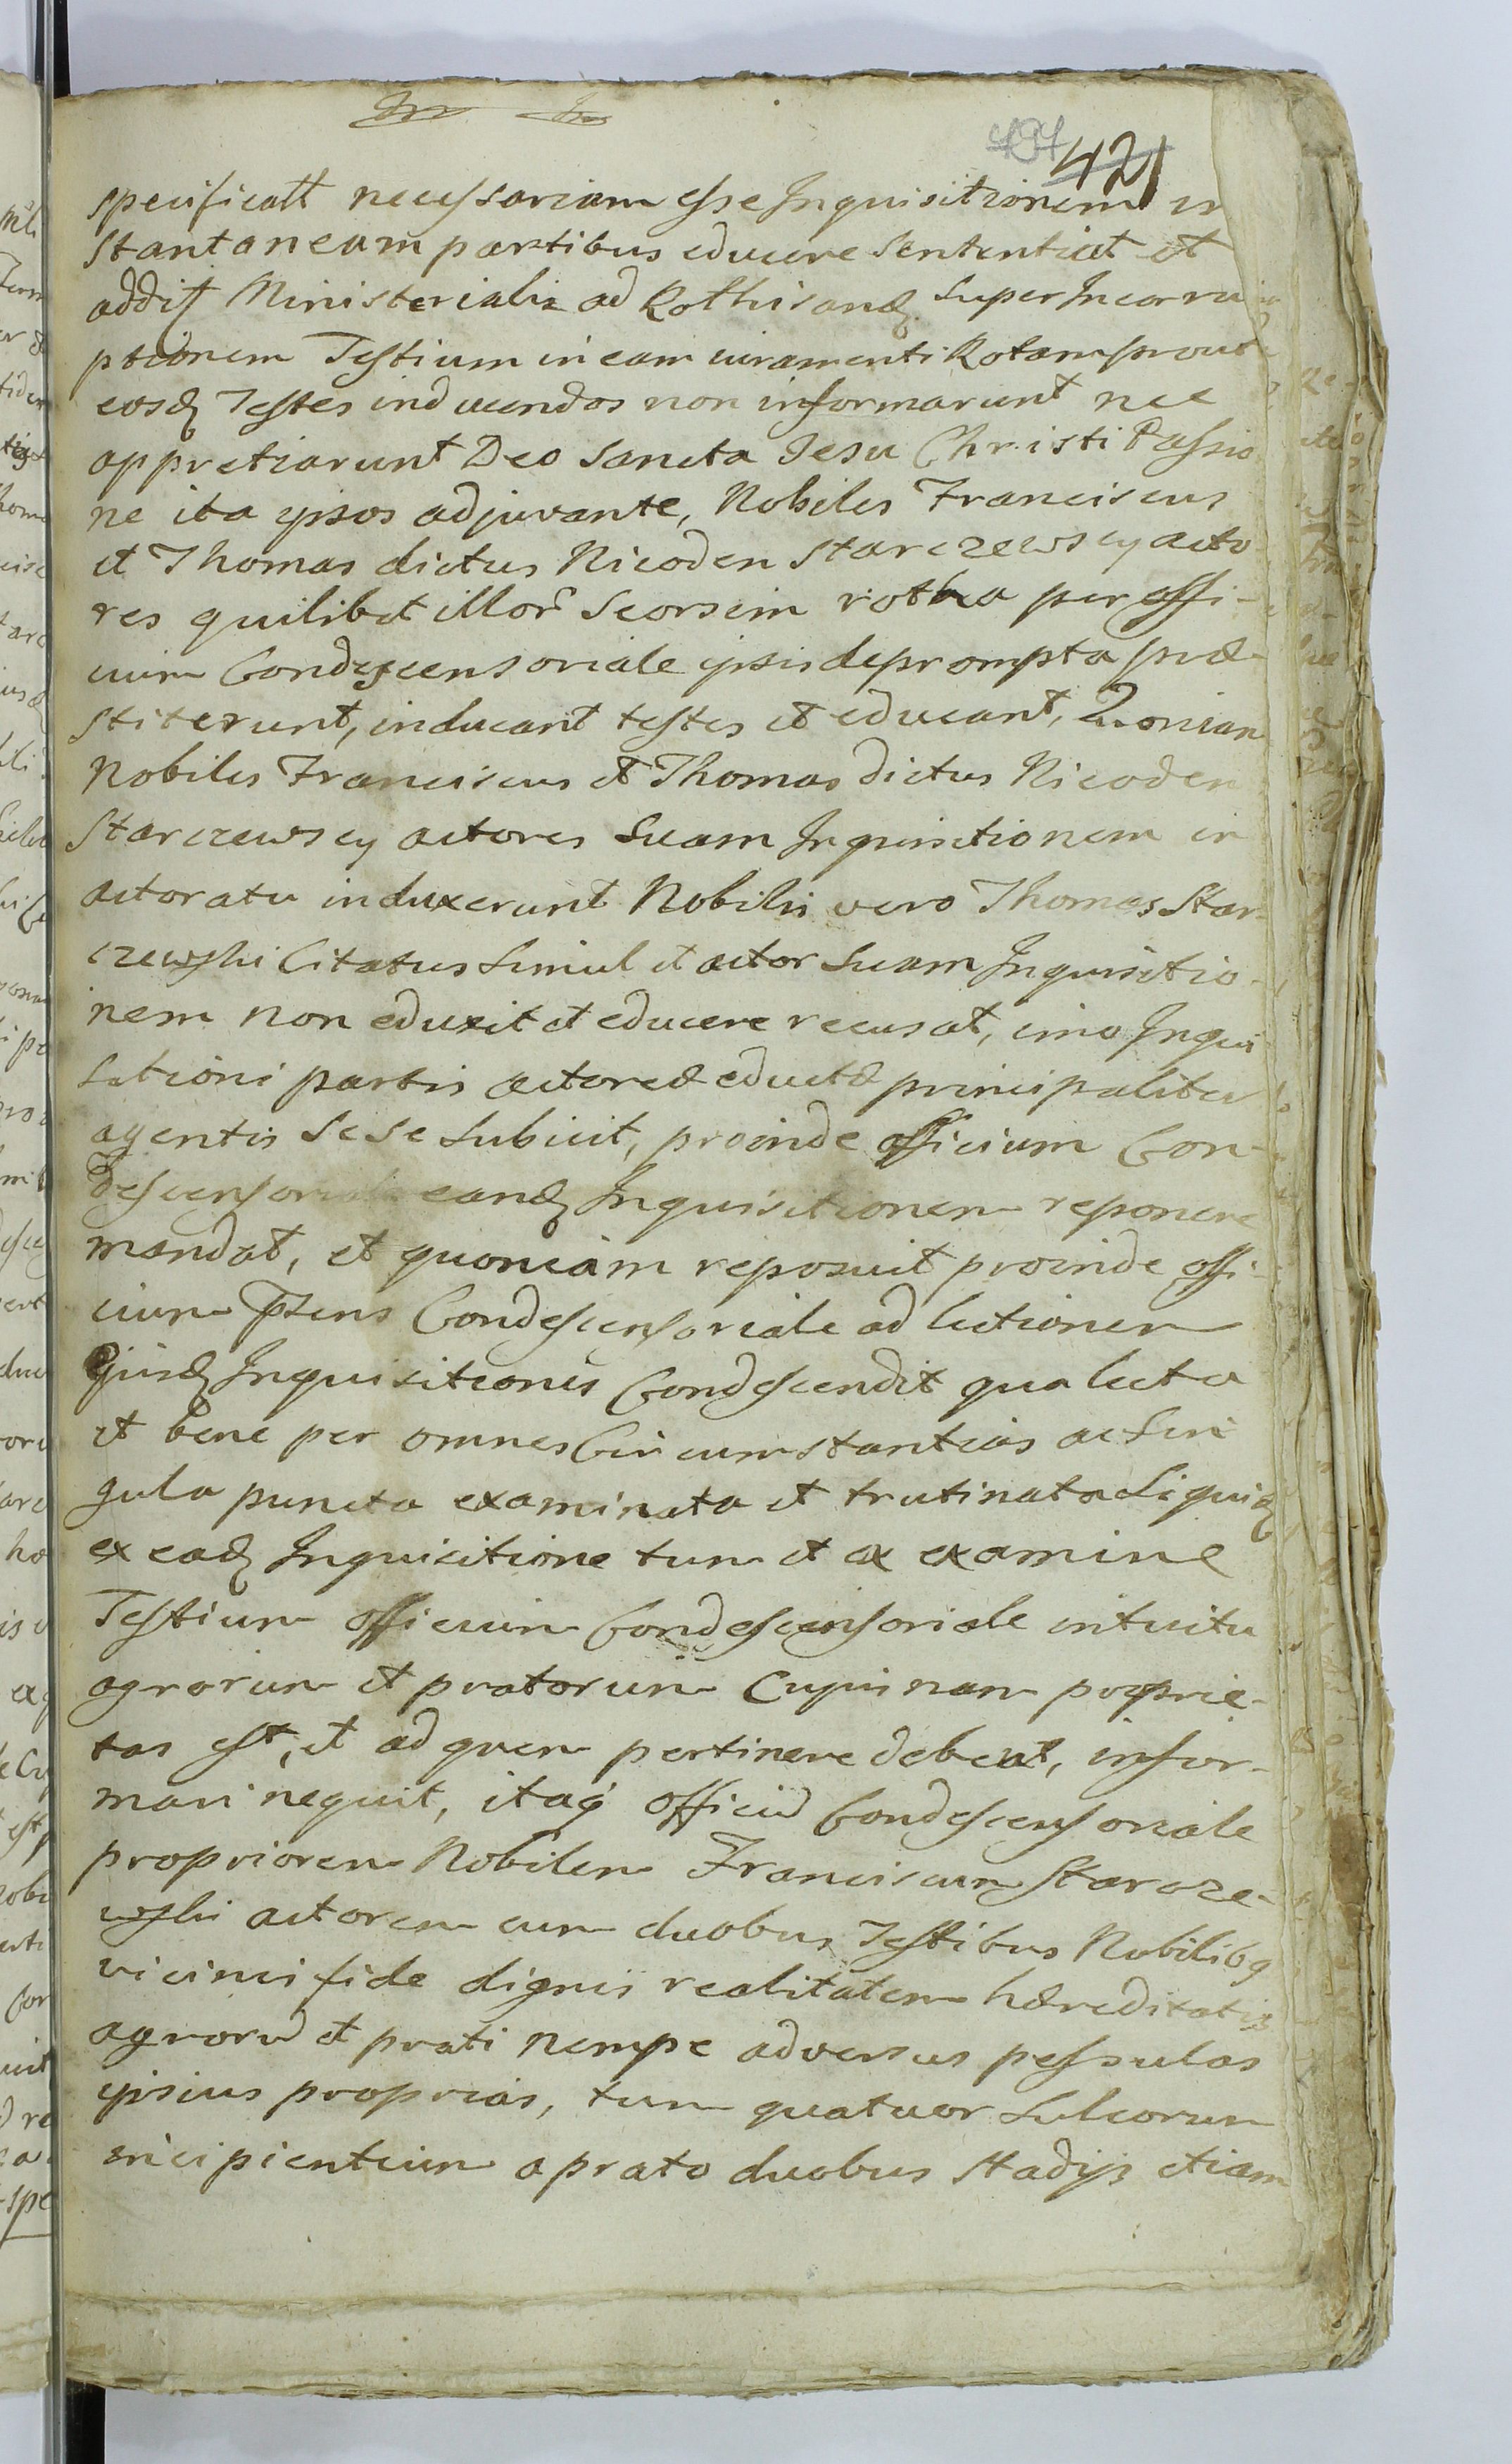 421
specificatt necessariam esse Inquisitionem in
stantaneam partibus educere sententiat et
addit Ministerialis ad Rothisandq. super Incorru
ptionem Testium in eam iuramenti Rotam prout
eosdq Testes inducendos non informarunt nec
appretiarunt Deo Sancta Jesu Christi Passio
ne ita ipsos adjuvante, Nobiles Franciscus
et Thomas dictus Nicodem Starczewscy acto
res quilibet illor seorsim rotha per offi-
cium Condescensoriale ipsis deprompta præ-
stiterunt, inducant testes et educant, Quoniam
Nobiles Franciscus et Thomas dictus Nicodem
Starczewscy actores suam Inquisitionem in
actoratu induxerunt Nobilis vero Thomas Star-
czewski Citatus simul et actor suam Inquisitio-
nem non eduxit et educere recusat, imo Inqui
sitioni partis actoreæ eductæ principaliter
agentis sese subicit, proinde officium Con-
descensoriale eandq Inquisitionem reponere
mandat, et quoniam reposuit proinde offi-
cium Psens Condescensoriale ad lectionem
Ejusdq Inquisitionis Condescendit qua lecta
et bene per omnes Circumstantias ac sin
gula puncta examinata et trutinata siquidq
ex eadq Inquisitione tum et ex examine
Testium officium Condescensoriale intuitu
agrorum et pratorum Cujusnam proprie-
tas est, et ad quem pertinere debeat, infor-
mari nequit, itaq officiu Condescensoriale
propriorem Nobilem Franciscum Starcze-
wski actorem cum duobus Testibus Nobilibq
vicinis fide dignis realitatem hæreditatis
agroru et prati nempe adversus pessulas
ipsius proprias, tum quatuor sulcorum
incipientium a prato duobus stadijs etiam